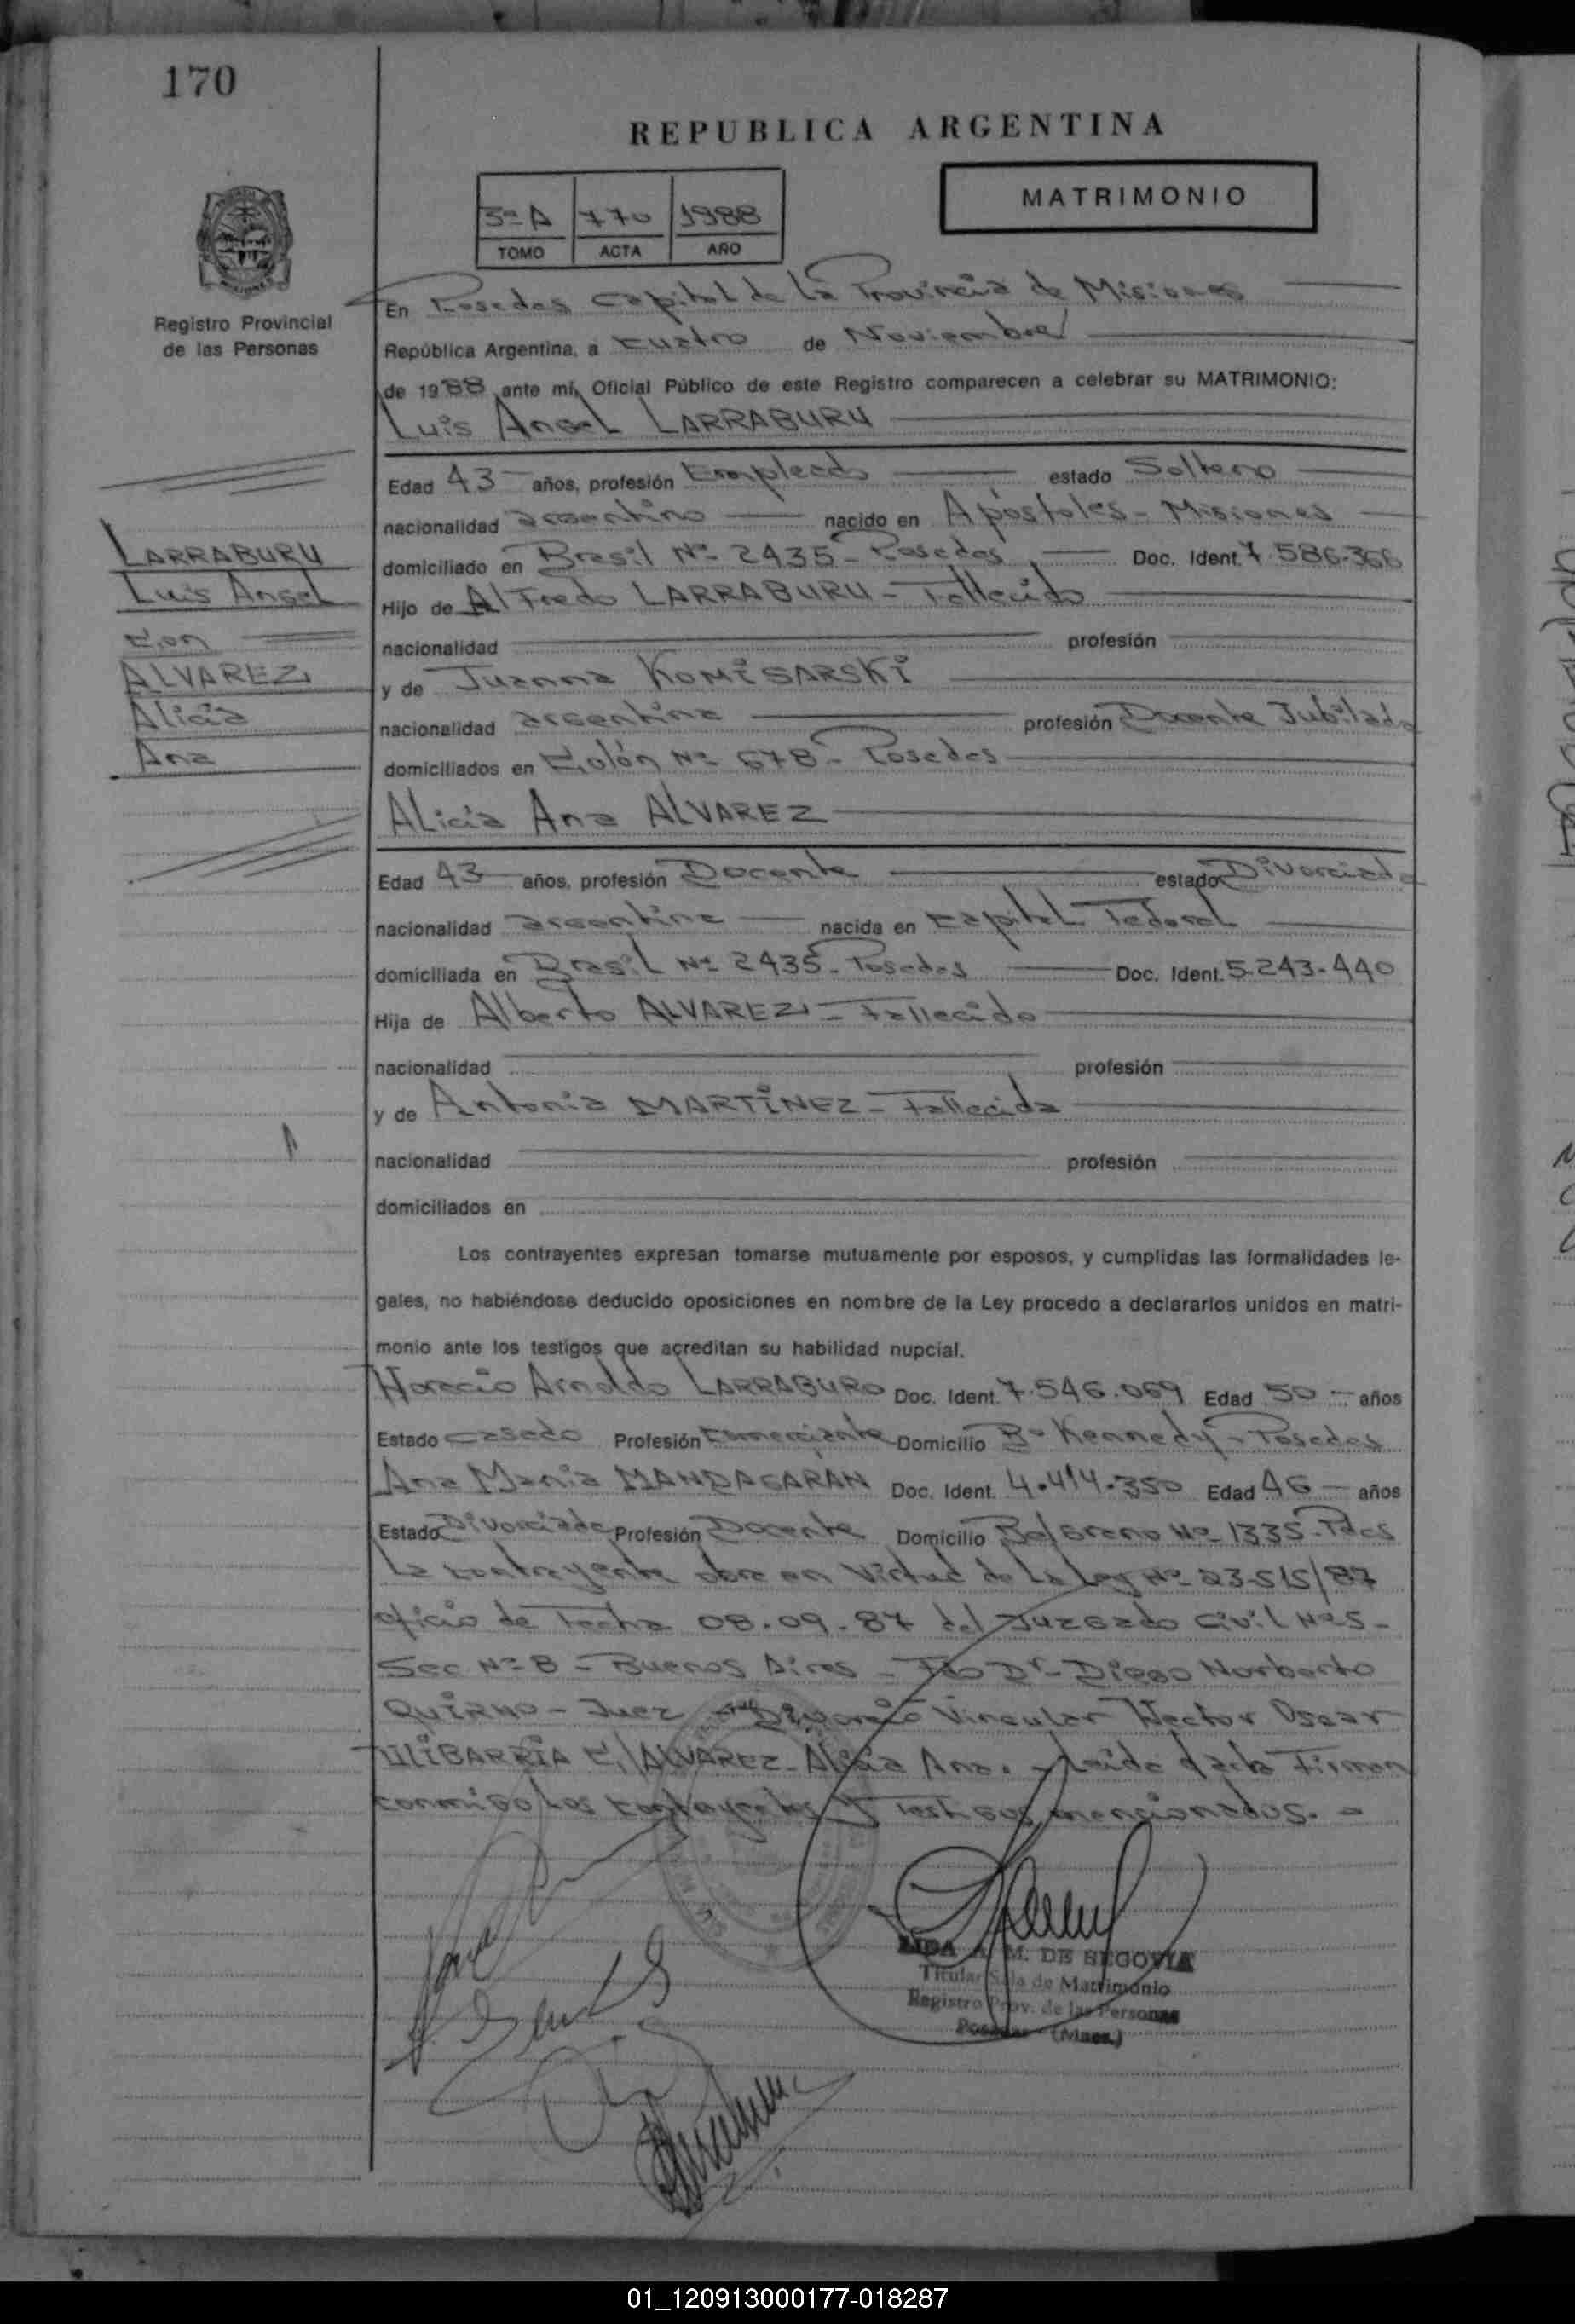 170
REPUBLICA ARGENTINA
MATRIMONIO
3º A 770 1988
TOMO ACTA AÑO
Registro Provincial
de las Personas
En Posadas Capital de La Provincia de Misiones
República Argentina, a cuatro de Noviembre
de 1988 ante mi, Oficial Público de este Registro comparecen a celebrar su MATRIMONIO:
Luis Angel LARRABURU
Edad 43 años, profesión Empleado estado Soltero
nacionalidad argentino nacido en Apóstoles - Misiones
domiciliado en Brasil Nº 2435 - Posadas Doc. Ident. 7.586.366
Hijo de Alfredo LARRABURU - Fallecido
nacionalidad profesión
y de Juanna KOMISARSKI
nacionalidad argentina profesión Docente Jubilada
domiciliados en Colón Nº 678 - Posadas
LARRABURU
Luis Angel
con
ALVAREZ
Alicia
Ana
Alicia Ana ALVAREZ
Edad 43 años, profesión Docente estado Divorciada
nacionalidad argentina nacida en Capital Federal
domiciliada en Brasil Nº 2435 - Posadas Doc. Ident. 5.243.440
Hija de Alberto ALVAREZ - Fallecido
nacionalidad profesión
y de Antonia MARTINEZ - Fallecida
nacionalidad profesión
domiciliados en
Los contrayentes expresan tomarse mutuamente por esposos, y cumplidas las formalidades le-
gales, no habiéndose deducido oposiciones en nombre de la Ley procedo a declararlos unidos en matri-
monio ante los testigos que acreditan su habilidad nupcial.
Horacio Arnoldo LARRABURO Doc. Ident. 7.546.069 Edad 50 - años
Estado casado Profesión Comerciante Domicilio Bº Kennedy - Posadas
Ana Maria MANDAGARAN Doc. Ident. 4.414.350 Edad 46 - años
Estado Divorciada Profesión Docente Domicilio Belgrano Nº 1335 - Pdas
La contrayente obra en virtud de La Ley Nº 23.515/87
oficio de Fecha 08.09.87 del Juzgado Civil Nº 5 -
Sec Nº 8 - Buenos Aires - Fdo Dr. Diego Norberto
QUIRNO - Juez - Divorcio Vincular Hector Oscar
ILIBARRIA C/ ALVAREZ Alicia Ana. - Leída el acta Firman
conmigo Los contrayentes y Testigos mencionados. -
A. M. DE SEGOVIA
Titular Sala de Matrimonio
Registro Prov. de las Personas
Posadas (Mnes.)
01_120913000177-018287